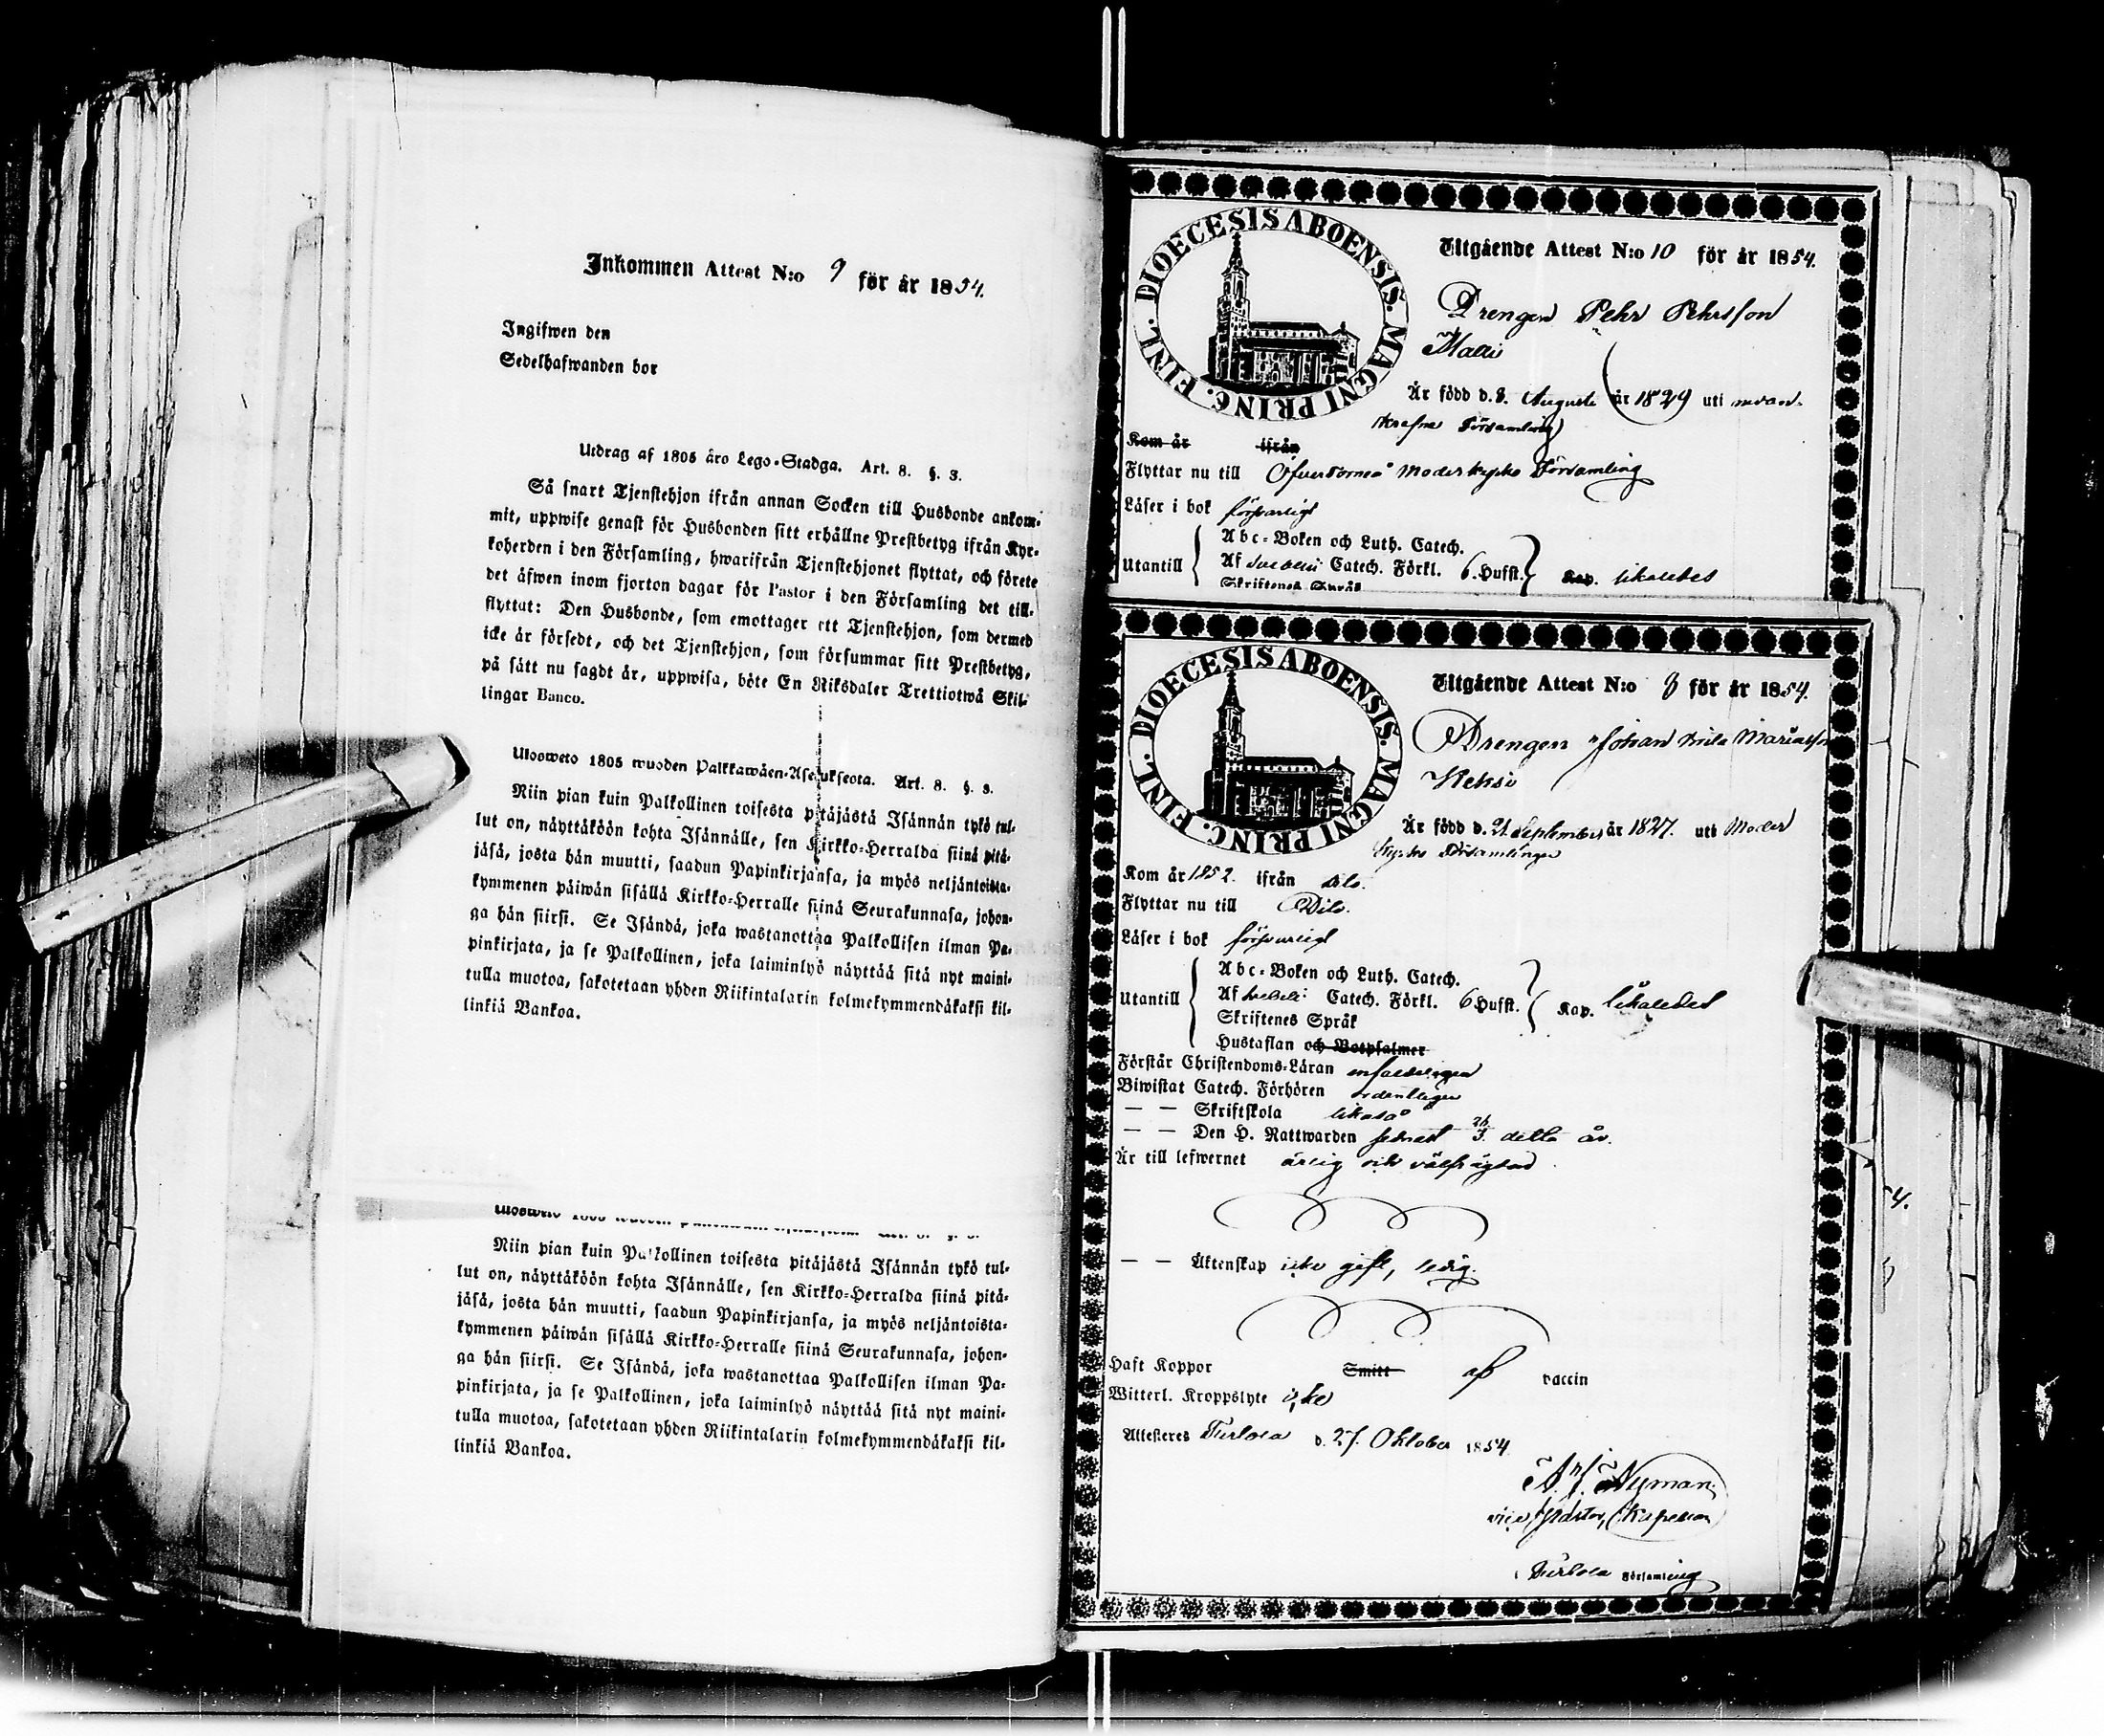 Inkommen Attest N:o 9 för år 1854.
Ingifwen den
Sedelhafwanden bor
Utdrag af 1805 års Lego-Stadga. Art. 8. §. 3.
Så snart Tjenstehjon ifrån annan Socken till Husbonde ankom-
mit, uppwise genast för Husbonden sitt erhållne Prestbetyg ifrån Kyr-
koherden i den Församling, hwarifrån Tjenstehjonet flyttat, och förete
det äfwen inom fjorton dagar för Pastor i den Församling det till-
flyttat: Den Husbonde, som emottager ett Tjenstehjon, som dermed
icke är försedt, och det Tjenstehjon, som försummar sitt Prestbetyg,
på sätt nu sagdt är, uppwisa, böte En Riksdaler Trettiotwå Skil-
lingar Banco.
Ulosweto 1805 wuoden Palkkawäen-Asetukseota. Art. 8. §. 3.
Niin pian kuin Palkollinen toisesta pitäjästä Isännän tykö tul-
lut on, näyttäköön kohta Isännälle, sen Kirkko-Herralda siinä pitä-
jäsä, josta hän muutti, saadun Papinkirjansa, ja myös neljäntoista-
kymmenen päiwän sisällä Kirkko-Herralle siinä Seurakunnasa, johon-
ga hän siirsi. Se Isändä, joka wastanottaa Palkollisen ilman Pa-
pinkirjata, ja se Palkollinen, joka laiminlyö näyttää sitä nyt maini-
tulla muotoa, sakotetaan yhden Riikintalarin kolmekymmendäkaksi kil-
linkiä Bankoa.
Niin pian kuin Palkollinen toisesta pitäjästä Isännän tykö tul-
lut on, näyttäköön kohta Isännälle, sen Kirkko-Herralda siinä pitä-
jäsä, josta hän muutti, saadun Papinkirjansa, ja myös neljäntoista-
kymmenen päiwän sisällä Kirkko-Herralle siinä Seurakunnasa, johon-
ga hän siirsi. Se Isändä, joka wastanottaa Palkollisen ilman Pa-
pinkirjata, ja se Palkollinen, joka laiminlyö näyttää sitä nyt maini-
tulla muotoa, sakotetaan yhden Riikintalarin kolmekymmendäkaksi kil-
linkiä Bankoa.
DIOECESIS ABOENSIS. MAGNI PRINC. FINL.
Utgående Attest N:o 10 för år 1854.
Drengen Pehr Pehrsson
Är född d. 8. Augusti år 1829 uti
Församling
Kom år ifrån
Flyttar nu till Öfvertorneå Moderkyrko Församling
Läser i bok försvarligt
Utantill
Abc-Boken och Luth. Catech.
Af Svebelii Catech. Förkl. 6. Hufst. Kap. likaledes
Skriftenes Språk
DIOECESIS ABOENSIS. MAGNI PRINC. FINL.
Utgående Attest N:o 8 för år 1854.
Drengen Johan
Keksi
Är född d. 21 September år 1827. uti Moder
kyrko Församlingen
Kom år 1852. ifrån dito.
Flyttar nu till Dito.
Läser i bok försvarligt
Utantill
Abc-Boken och Luth. Catech.
Af Svebelii Catech. Förkl. 6 Hufst. Kap. likaledes
Skriftenes Språk
Hustaflan och Botpsalmer
Förstår Christendoms-Läran enfaldeligen
Biwistat Catech. Förhören ordentligen
— — Skriftskola likaså
— — Den H. Nattwarden sednast detta år.
Är till lefwernet ärlig och välfrägdad
— — Äktenskap icke gift, ledig.
Haft Koppor Smitt af vaccin
Witterl. Kroppslyte icke
Attesteras Turtola d. 27. Oktober 1854
Nyman
vice Pastor, Kapellan
Turtola Församling